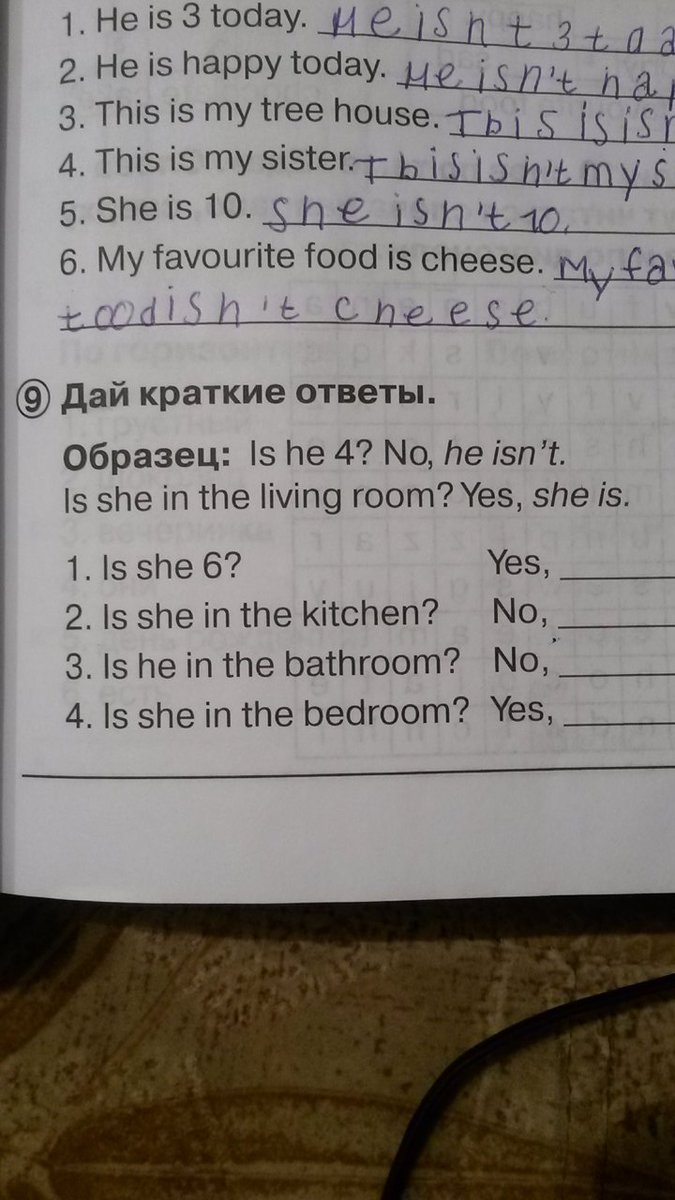 1. He is 3 today. He isn t 3 toda
2. He is happy today. He isn't hap
3. This is my tree house. This is isn
4. This is my sister. This isn't my s
5. She is 10. She isn't 10.
6. My favourite food is cheese. My fav
food isn't cheese.
9 Дай краткие ответы.
Образец: Is he 4? No, he isn't.
Is she in the living room? Yes, she is.
1. Is she 6? Yes,
2. Is she in the kitchen? No,
3. Is he in the bathroom? No,
4. Is she in the bedroom? Yes,